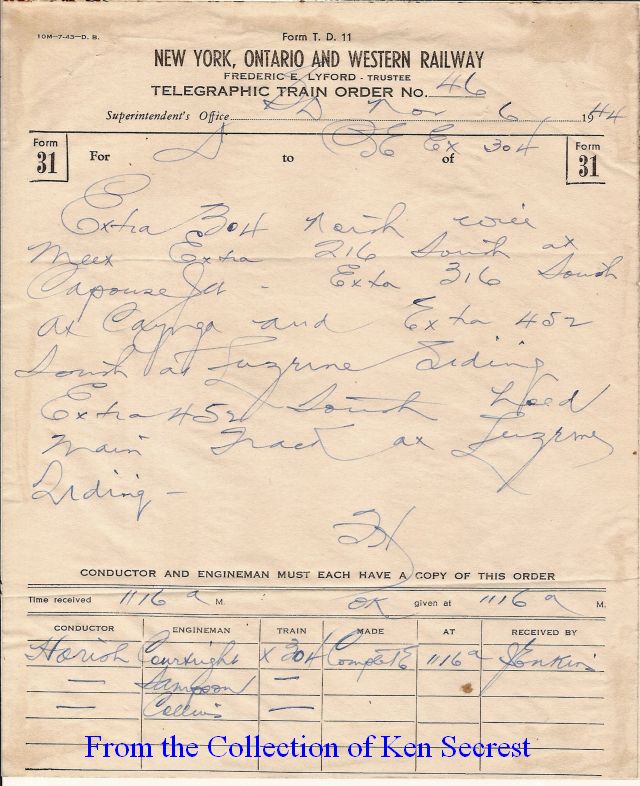 10M-7-43-D. B.
Form T. D. 11
NEW YORK, ONTARIO AND WESTERN RAILWAY
FREDERIC E. LYFORD - TRUSTEE
TELEGRAPHIC TRAIN ORDER No. 46
Superintendent's Office Nov 6 1944
Form 31 For to C&E Ex 304 of Form 31
Extra 304 North will
Meet Extra 216 South at
Capouse Jct - Exta 316 South
at Cayuga and Extra 452
South at Luzerne Siding
Extra 452 South hold
Main Track at Luzerne
Siding -
CONDUCTOR AND ENGINEMAN MUST EACH HAVE A COPY OF THIS ORDER
Time received 1116 a M. OK given at 1116 a M.
CONDUCTOR ENGINEMAN TRAIN MADE AT RECEIVED BY
Courtright x 304 Complete 1116 a Jenkins
— Sampson —
— Collins —
From the Collection of Ken Secrest